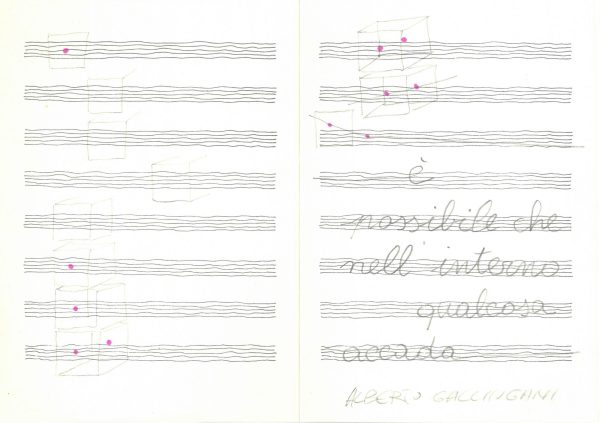 è
possibile che
nell'interno
qualcosa
accada
ALBERTO GALLINGANI